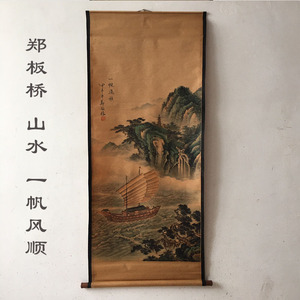 郑板桥 山水 一帆风顺
一帆风顺